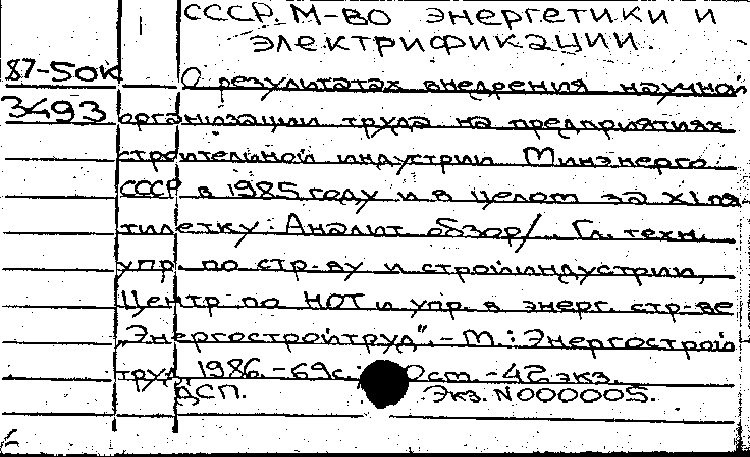 СССР. М-во энергетики и
электрификации.
87-50К
О результатах внедрения научной
3493
организации труда на предприятиях
строительной индустрии Минэнерго
СССР в 1985 году и в целом за XI пя-
тилетку: Аналит. обзор/... Гл. техн.
упр. по стр-ву и стройиндустрии,
Центр по НОТ и упр. в энерг. стр-ве
„Энергостройтруд". - М.: Энергострой
труд, 1986. - 69с.; Ост. - 42 экз.
ДСП. Экз. N000005.